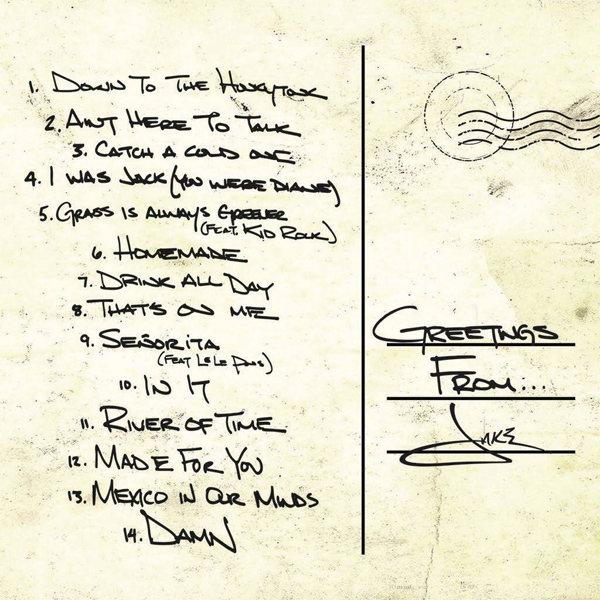 1. Down To The Honkytonk
2. Ain't Here To Talk
3. Catch A Cold One
4. I Was Jack (You Were Diane)
5. Grass Is Always Greener
(Feat. Kid Rock)
6. Homemade
7. Drink All Day
8. That's On Me
9. Señorita
(Feat LoLo Pons)
10. In It
11. River Of Time
12. Made For You
13. Mexico In Our Minds
14. Damn
Greetings
From...
Jake